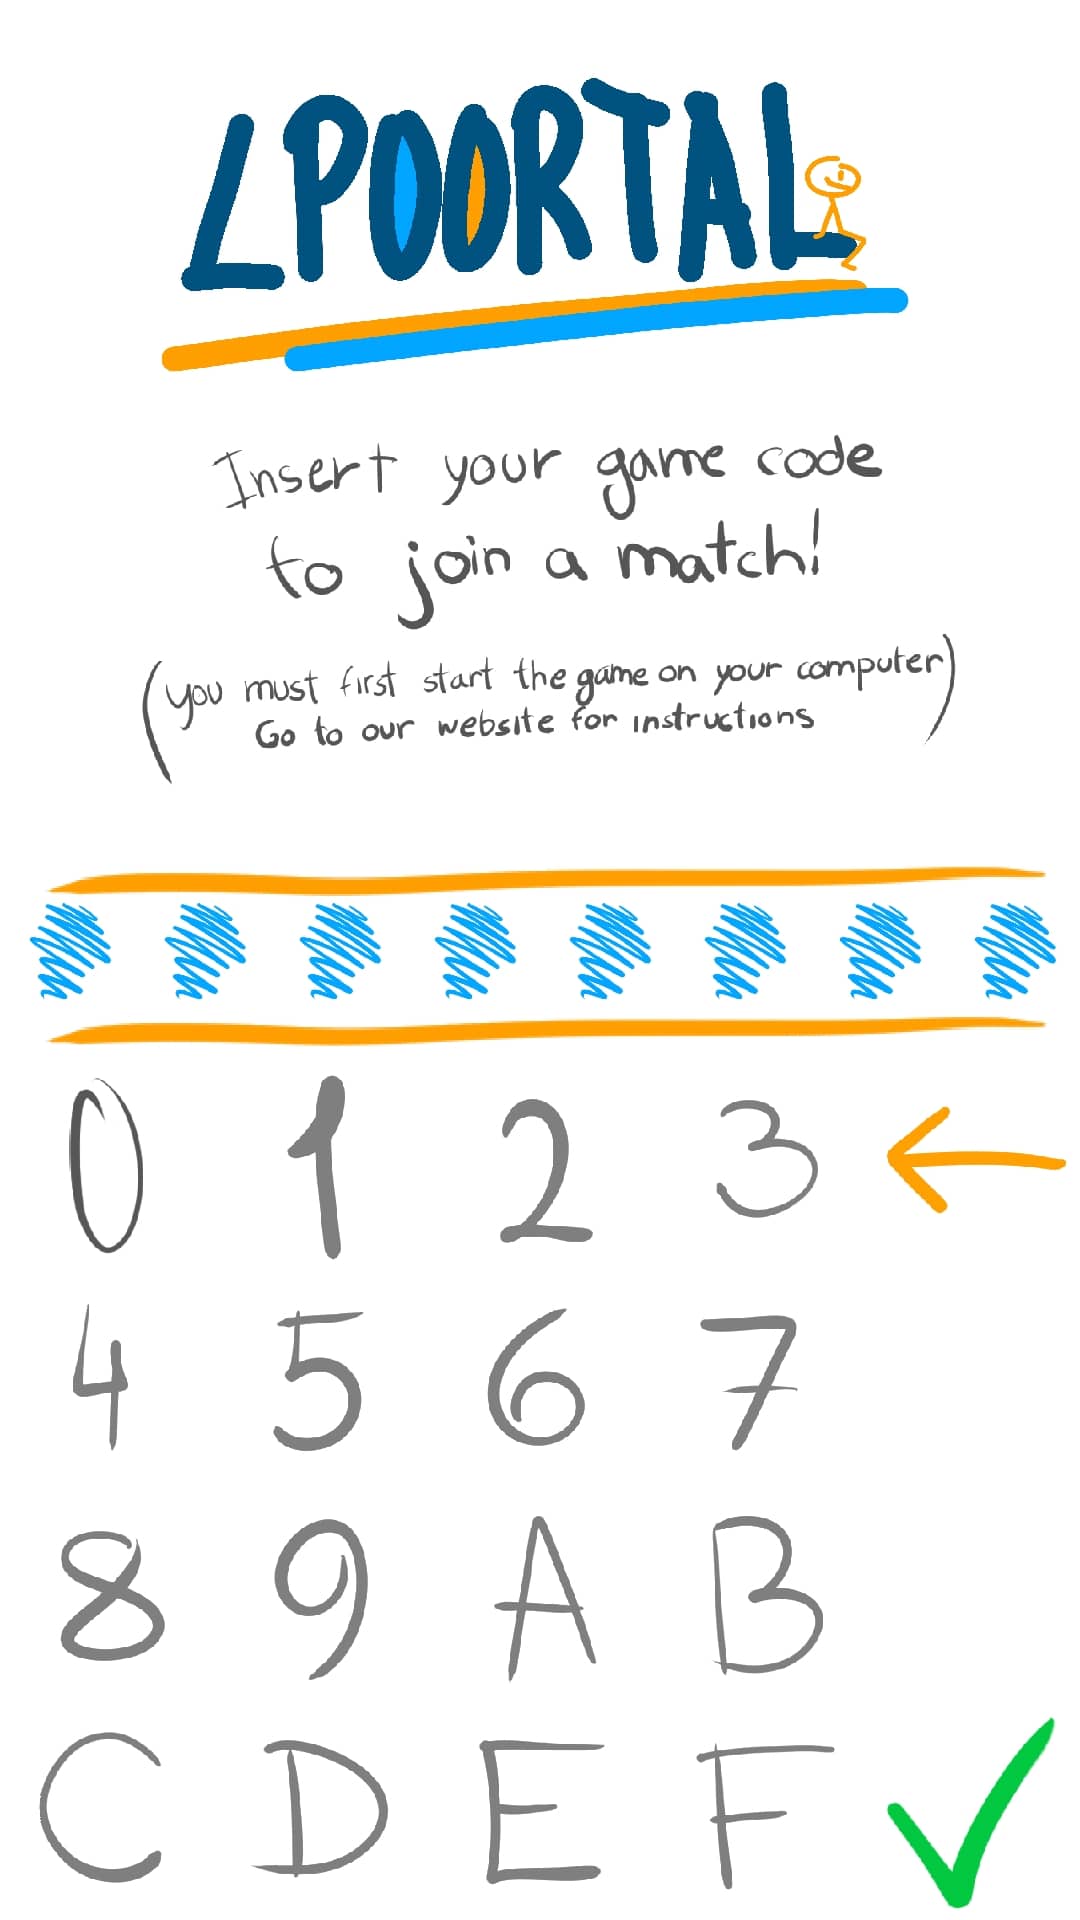 LPOORTAL
Insert your game code
to join a match!
(you must first start the game on your computer)
Go to our website for instructions
0 1 2 3
4 5 6 7
8 9 A B
C D E F